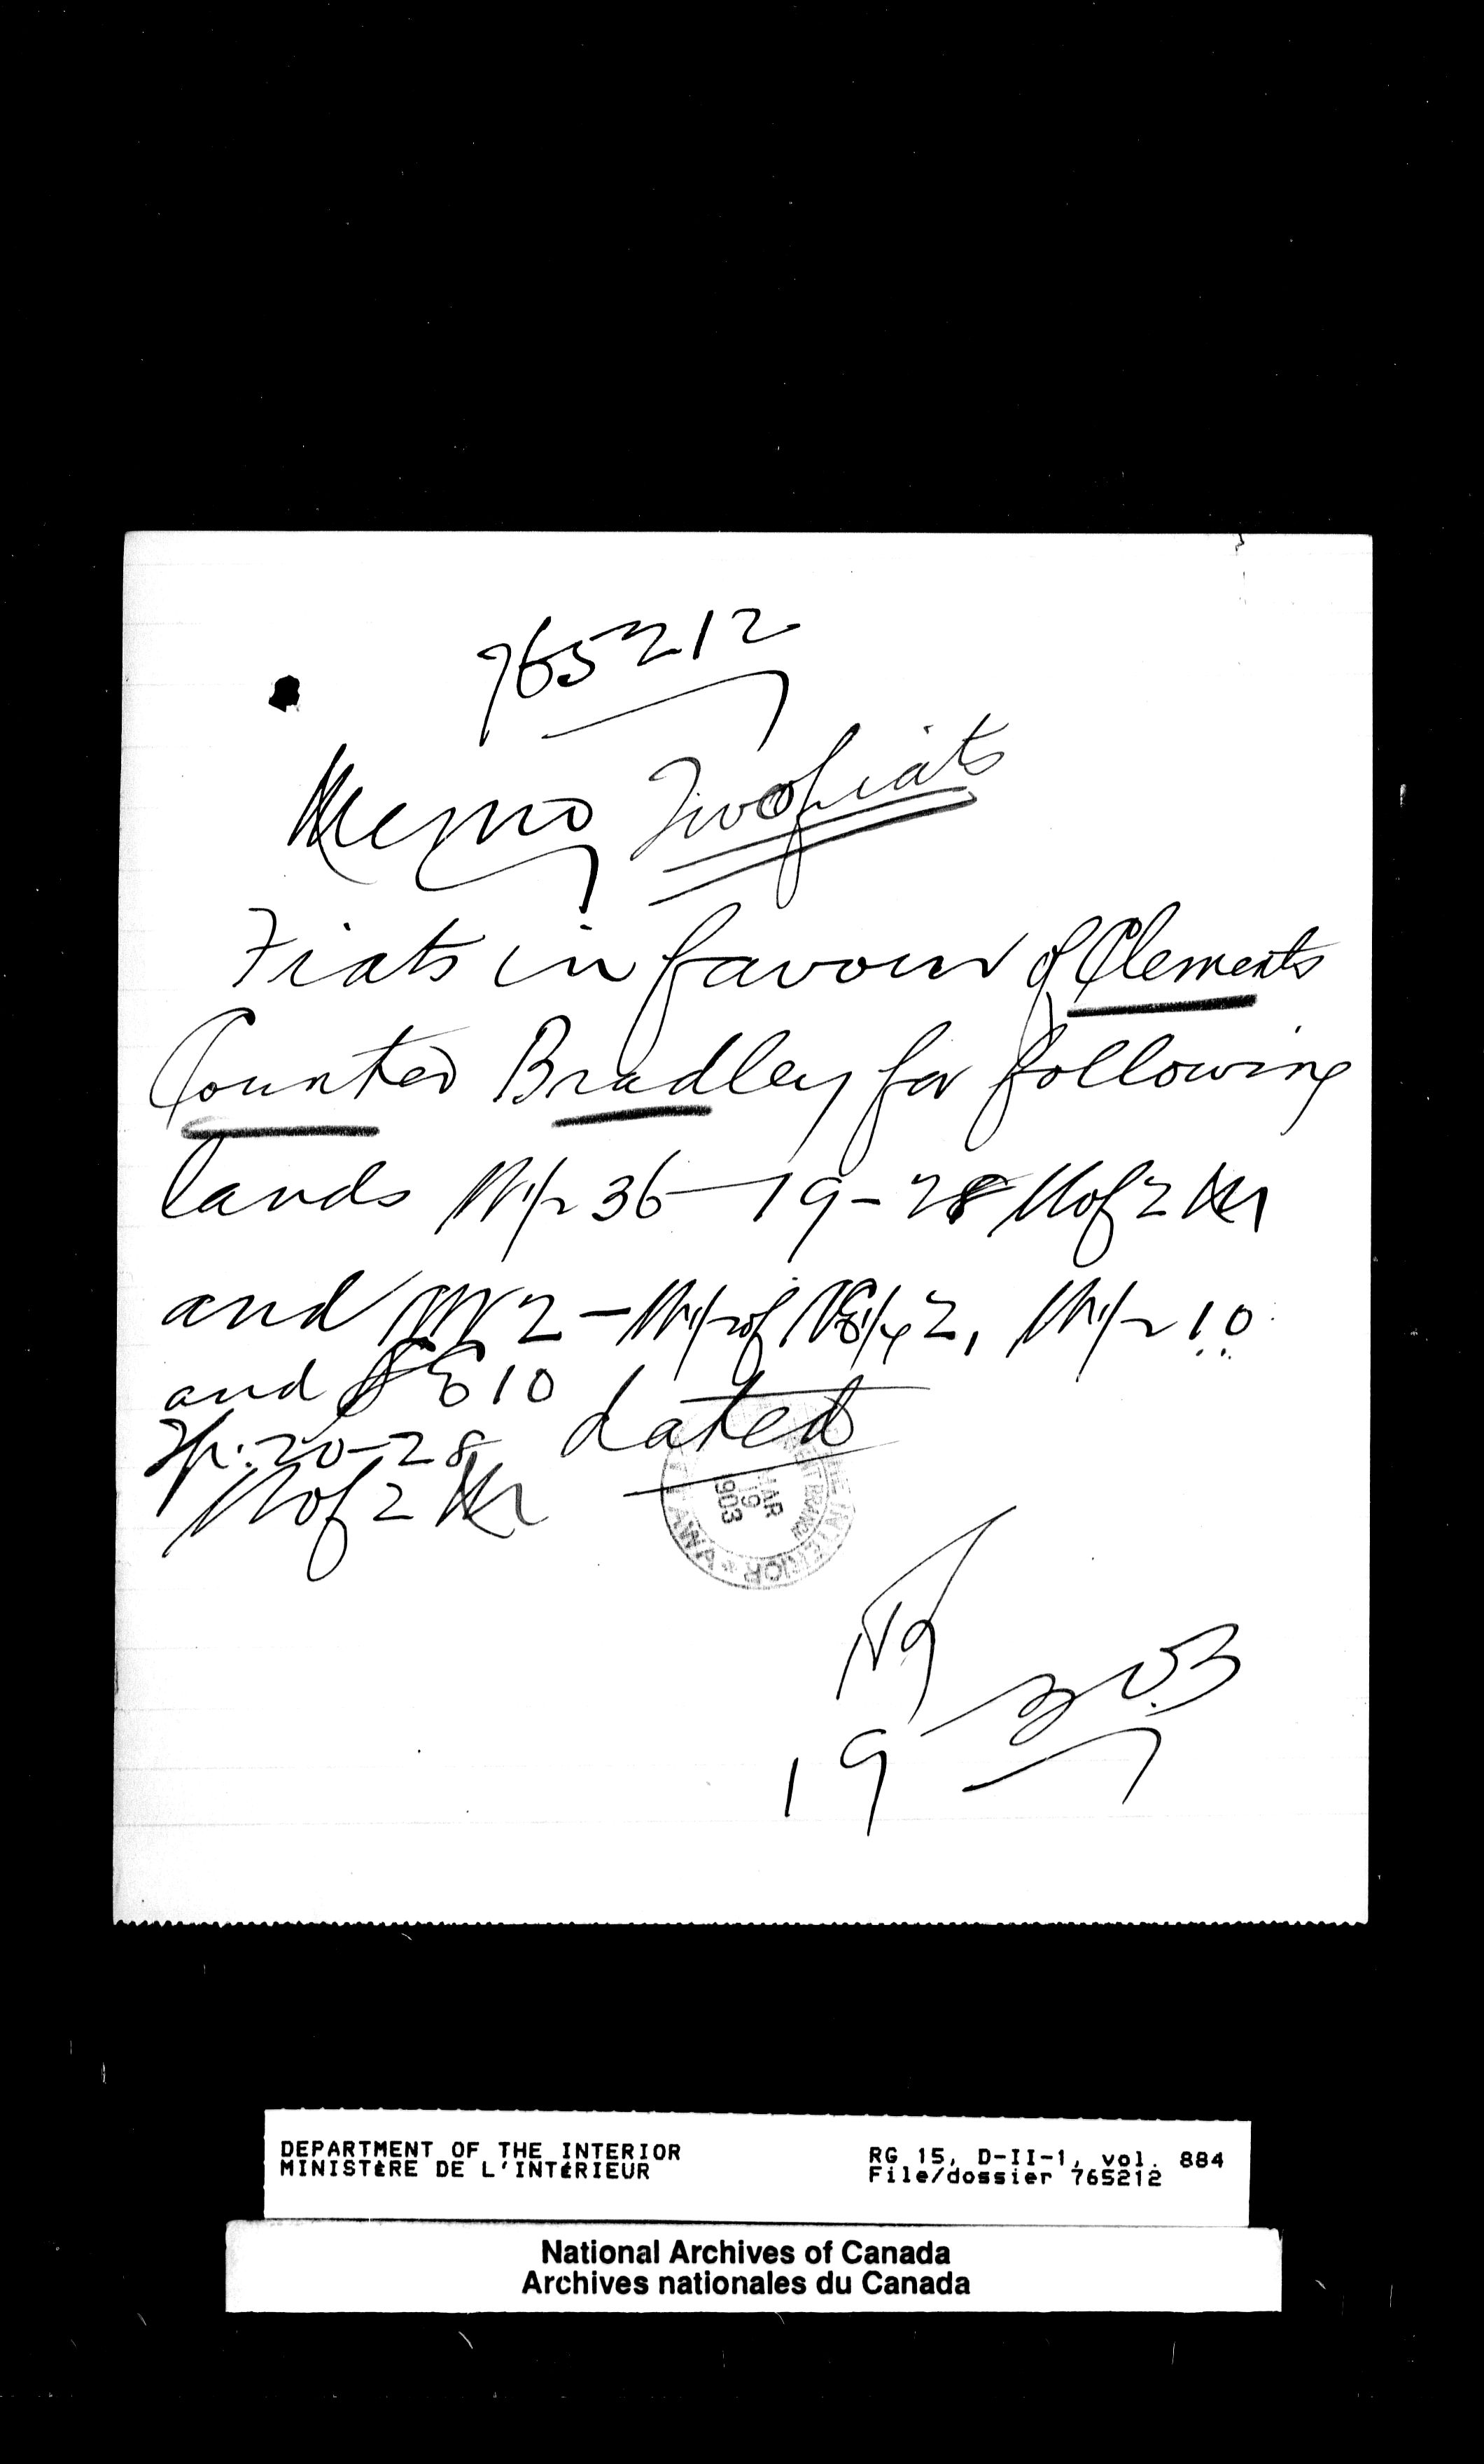 765212
Memo Two fiats
Fiats in favour of Clements
Counter Bradley for following
lands W1/2 36-19-28 W of 2 M
and 2 - W1/2 of NE1/4 2, W1/2 10
and SE 10
Tp. 20-28 dated
W of 2 M
INTERIOR
OTTAWA
MAR
19
1903
19 3 03
DEPARTMENT OF THE INTERIOR
MINISTÈRE DE L'INTÉRIEUR
RG 15, D-II-1, vol. 884
File/dossier 765212
National Archives of Canada
Archives nationales du Canada